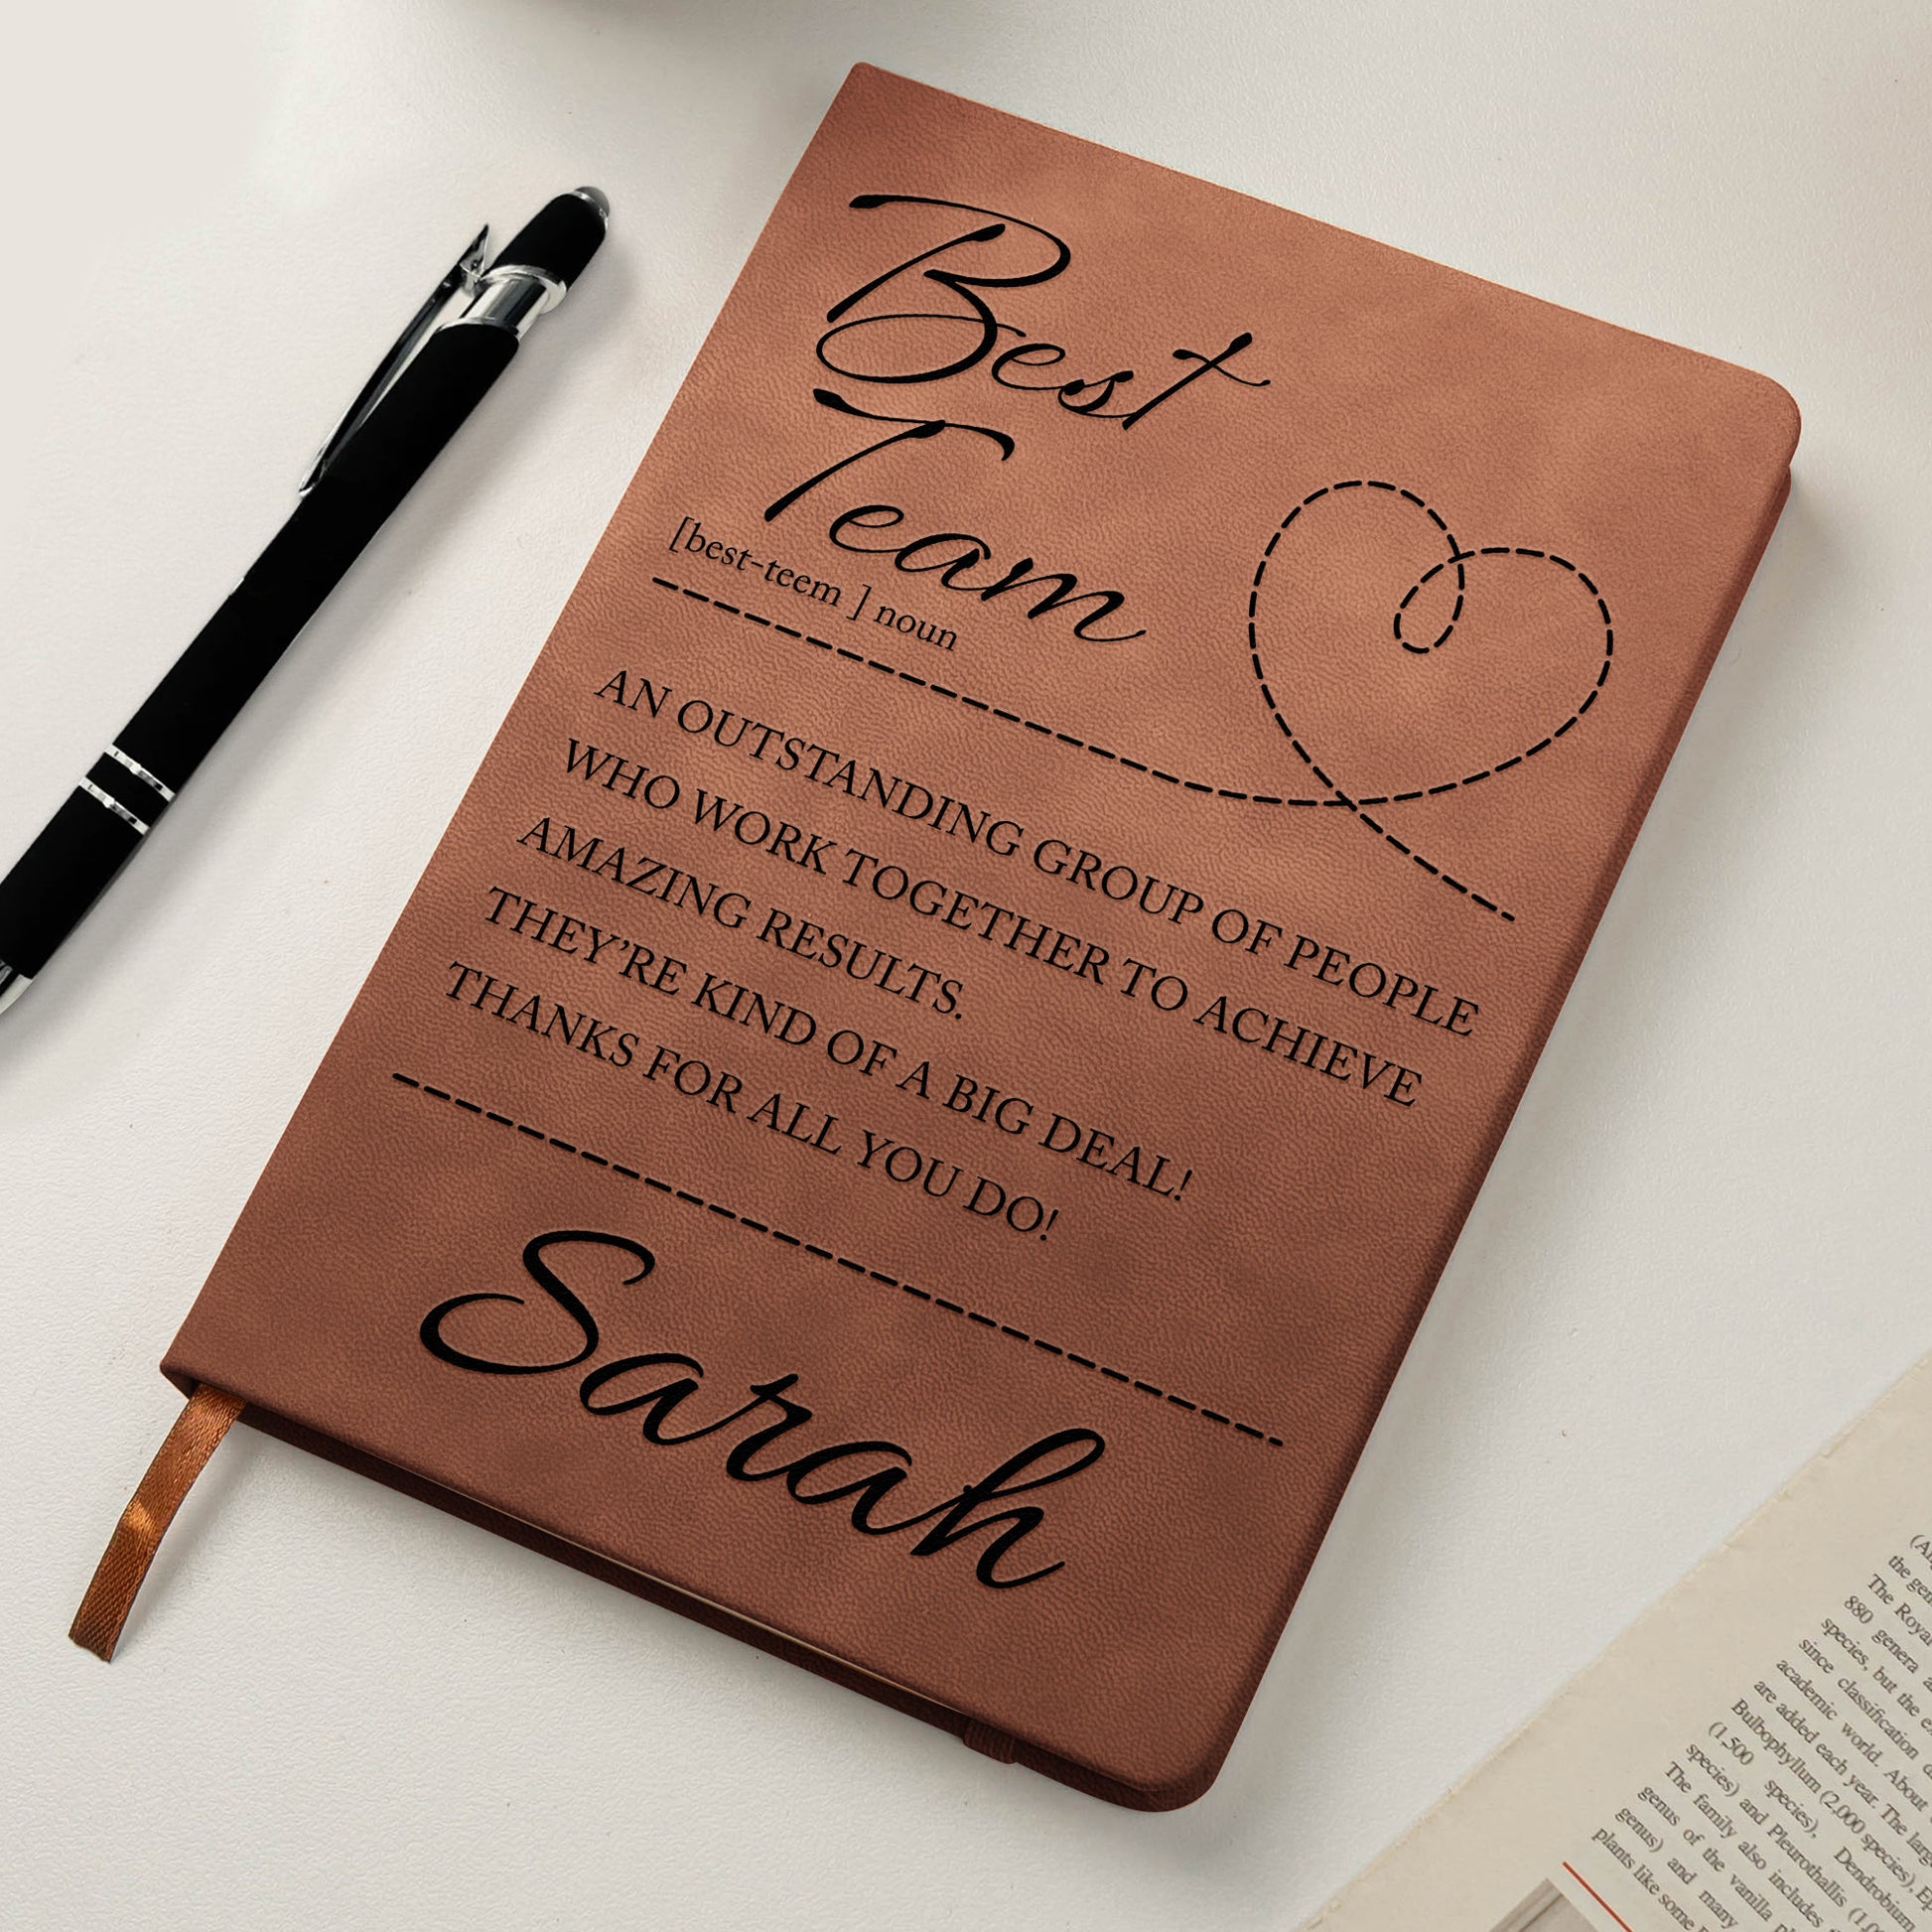 Best
Team
[best-teem ] noun
AN OUTSTANDING GROUP OF PEOPLE
WHO WORK TOGETHER TO ACHIEVE
AMAZING RESULTS.
THEY’RE KIND OF A BIG DEAL!
THANKS FOR ALL YOU DO!
Sarah
the
The Royal
880 genera
species, but the
since classification
academic world. About
are added each year. The
Bulbophyllum (2,000 species),
(1,500 species), Dendrobium
species) and Pleurothallis
The family also includes
genus of the vanilla
genus) and many
plants like some